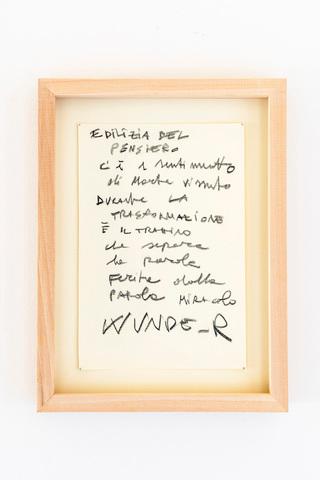 EDILIZIA DEL
PENSIERO
C'È 1 sentimento
di Morte vissuto
Durante LA
TRASFORMAZIONE
È IL TRATTINO
che separa
la parola
Ferita dalla
PAROLA MIRACOLO
WUNDE_R